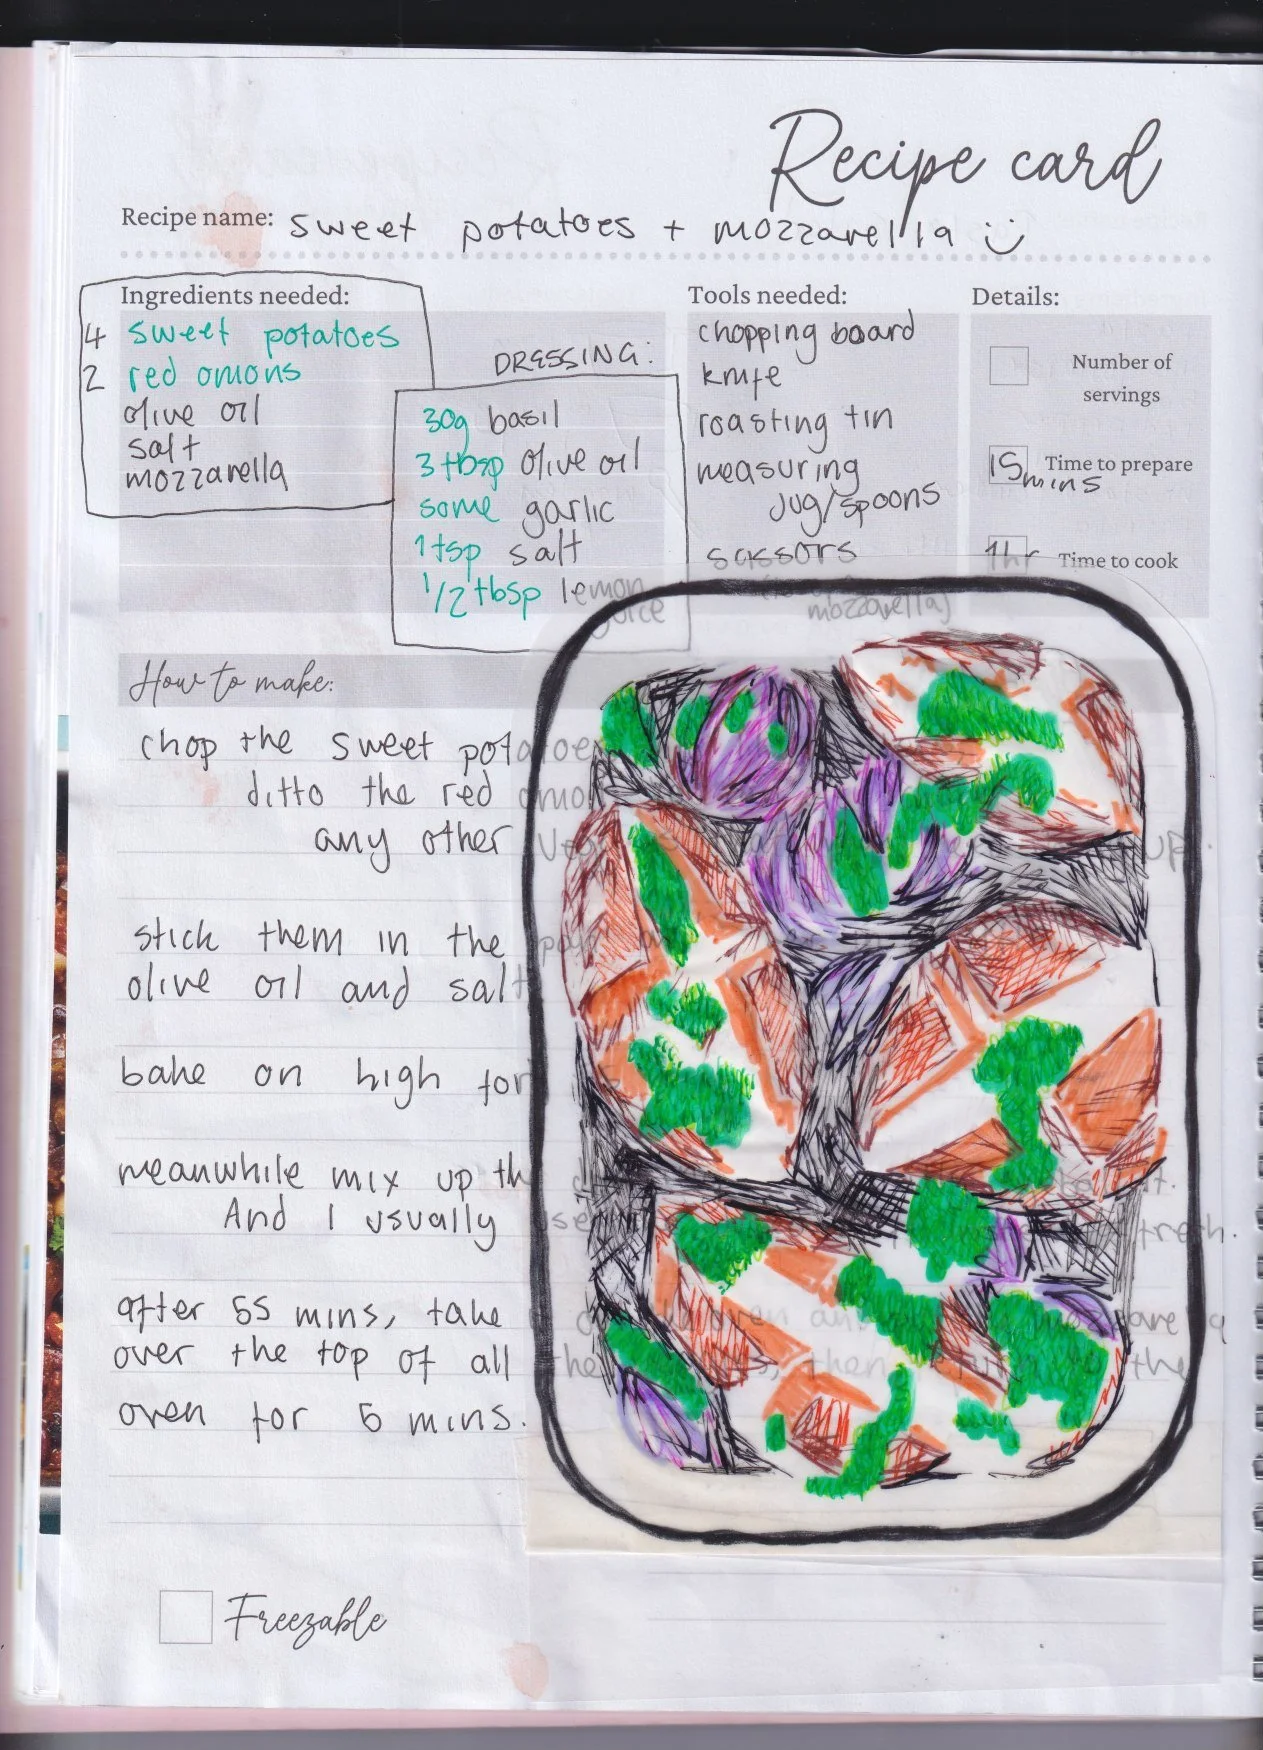 Recipe card
Recipe name: sweet potatoes + mozzarella :)
Ingredients needed:
4 sweet potatoes
2 red onions
olive oil
salt
mozzarella
DRESSING:
30g basil
3 tbsp olive oil
some garlic
1 tsp salt
1/2 tbsp lemon
juice
Tools needed:
chopping board
knife
roasting tin
measuring
jug/spoons
scissors
mozzarella)
Details:
Number of
servings
15 mins Time to prepare
1hr Time to cook
How to make:
chop the sweet potatoes
ditto the red onion
any other up.
stick them in the
olive oil and salt
bake on high for
meanwhile mix up th
And I usually use fresh.
after 55 mins, take
over the top of all the then the
oven for 5 mins.
Freezable